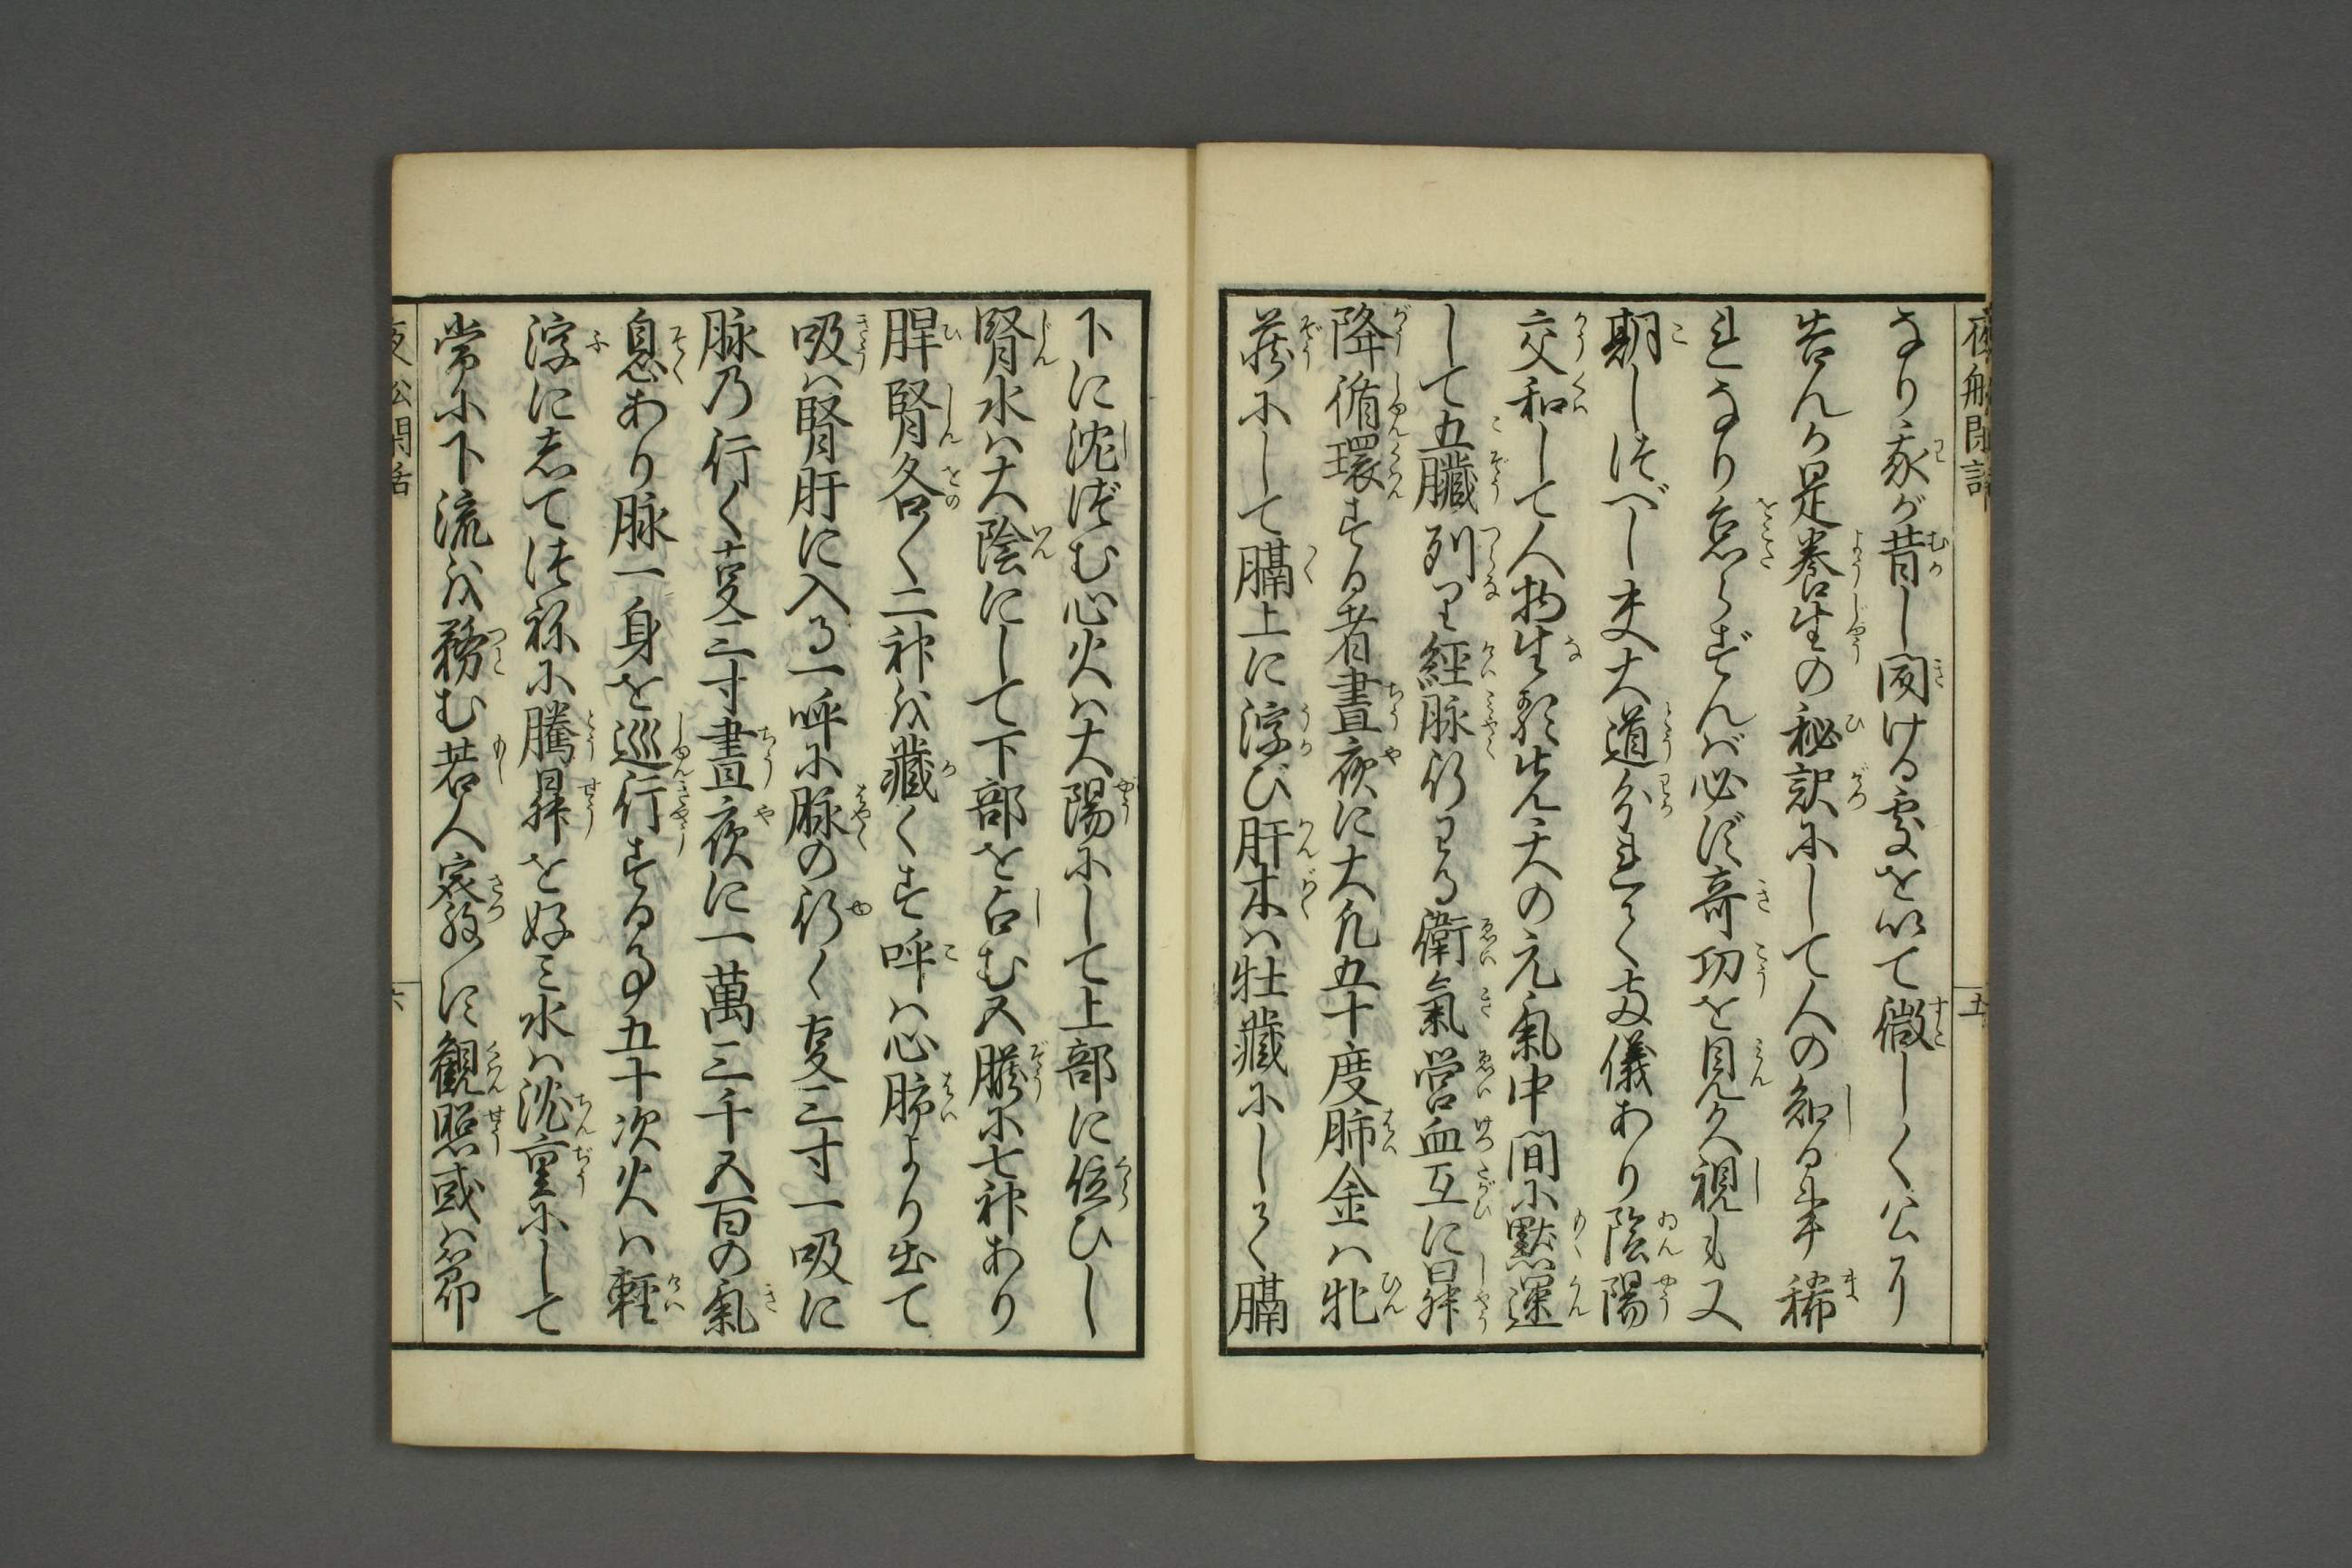 夜船閑話
五
なり我が昔し聞ける處を以て微しく公に
告んか是養生の秘訣にして人の知る事稀
れなり怠らずんば必ず奇功を見ん久視も又
期しつべし夫大道分れて両儀あり陰陽
交和して人物生る先天の元氣中間に黙運
して五臓列り經脉行わる衛氣営血互に昇
降循環する者晝夜に大凡五十度肺金は牝
藏にして膈上に浮び肝木は牡藏にして膈
下に沈ずむ心火は大陽にして上部に位ひし
腎水は大陰にして下部を占む又臓に七神あり
脾腎各〱二神を藏くす呼は心肺より出て
吸は腎肝に入る一呼に脉の行く事三寸一吸に
脉の行く事三寸晝夜に一萬三千五百の氣
息あり脉一身を巡行する事五十次火は軽
浮にしてつねに騰昇を好み水は沈重にして
常に下流を務む若人察せず観照或は節
夜船閑話
六